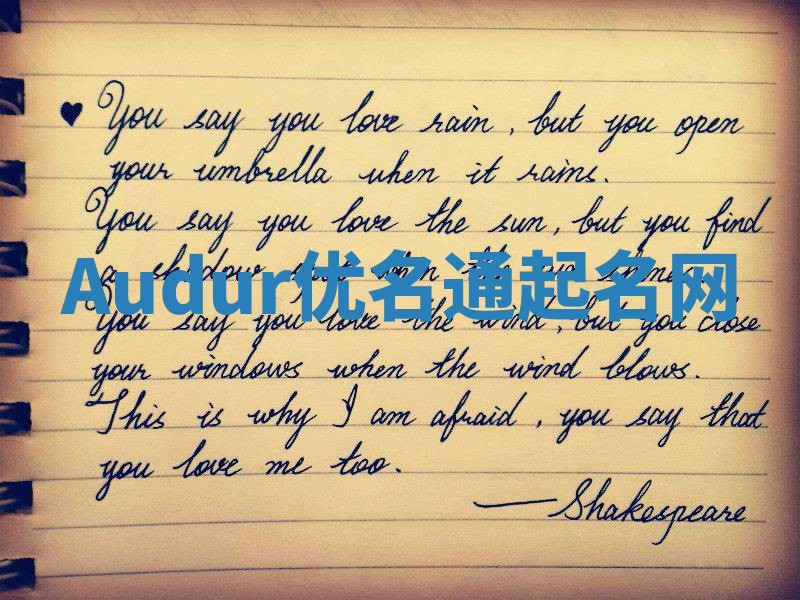 ♥ You say you love rain, but you open
your umbrella when it rains.
You say you love the sun, but you find
a shadow when the sun shines.
Audur优名通起名网
You say you love the wind, but you close
your windows when the wind blows.
This is why I am afraid, you say that
you love me too.
—Shakespeare